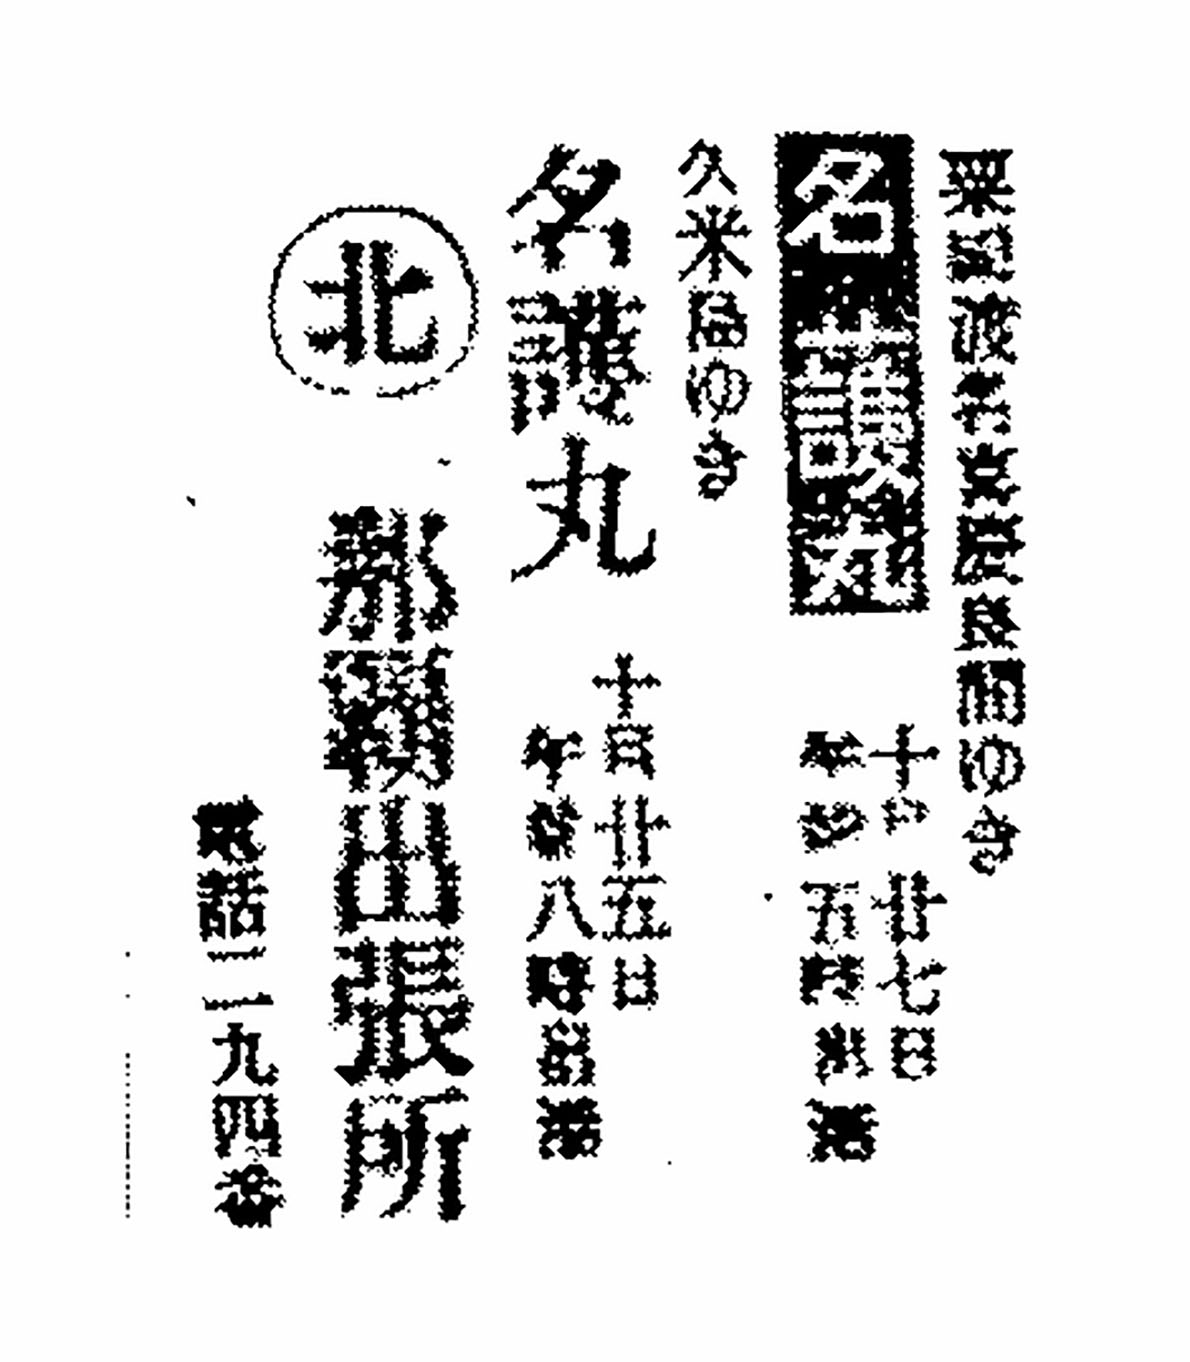 粟國渡名喜慶良間ゆき
名護丸
十月廿七日
午後五時出帆
久米島ゆき
名護丸
十月廿五日
午後八時出帆
北
那覇出張所
電話二九四番